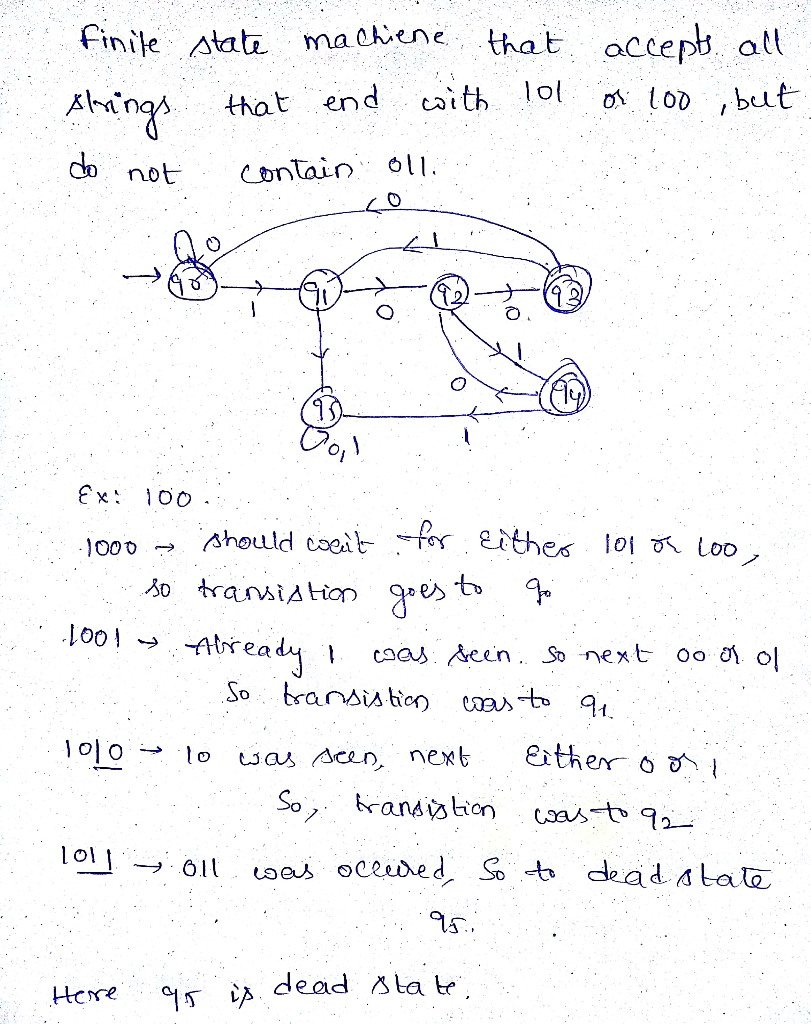 finite state machiene that accepts all
strings that end with 101 or 100, but
do not contain 011.
0
0
1
q0
1
q1
0
q2
0
q3
1
0
q4
q5
1
0,1
Ex: 100.
1000 → should wait for either 101 or 100,
so transistion goes to q0
1001 → Already 1 was seen. so next 00 or 01
So transistion was to q1.
1010 → 10 was seen, next either 0 or 1
So, transistion was to q2
1011 → 011 was occured, So to dead state
q5.
Here q5 is dead state.